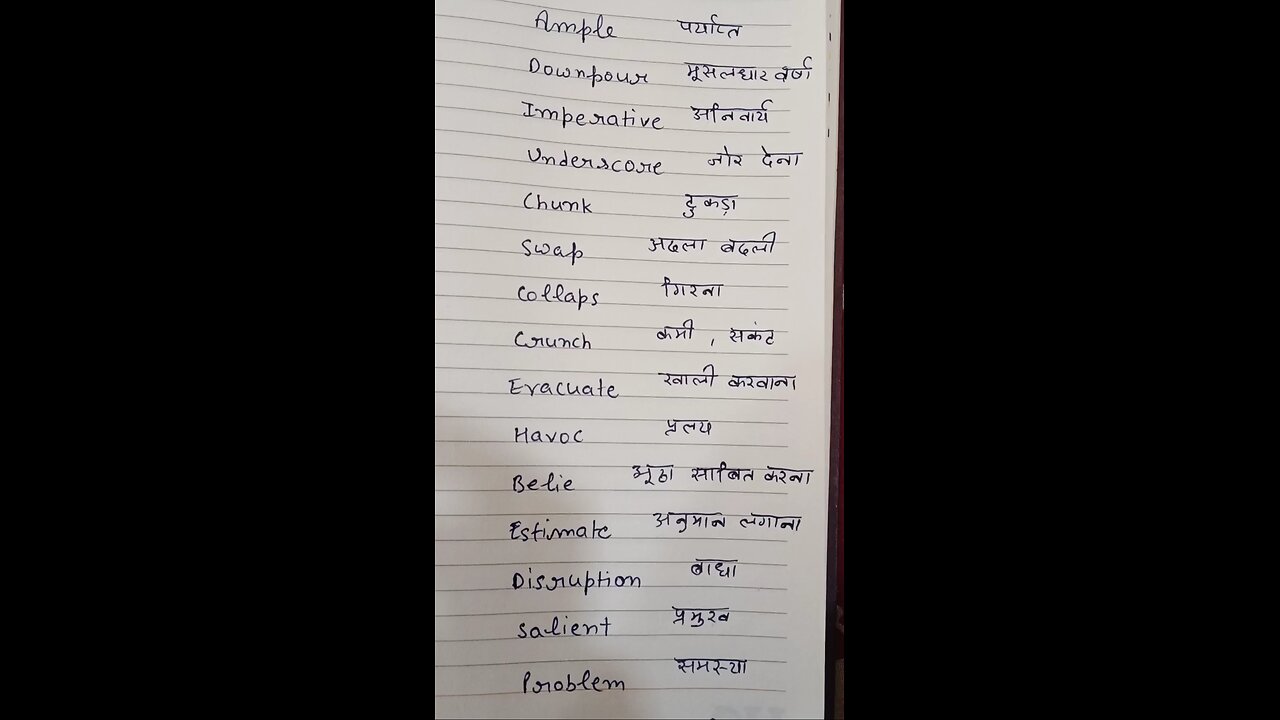 Ample पर्याप्त
Downpour मूसलधार वर्षा
Imperative अनिवार्य
Underscore जोर देना
Chunk टुकड़ा
Swap अदला बदली
Collaps गिरना
Crunch कमी , सकंट
Evacuate खाली करवाना
Havoc प्रलय
Belie झूठा साबित करना
Estimate अनुमान लगाना
Disruption बाधा
Salient प्रमुख
Problem समस्या